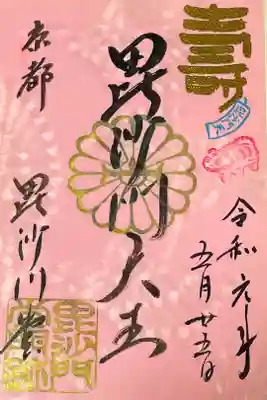 壽
令和元年
五月廿五日
毘沙門天王
京都
毘沙門堂